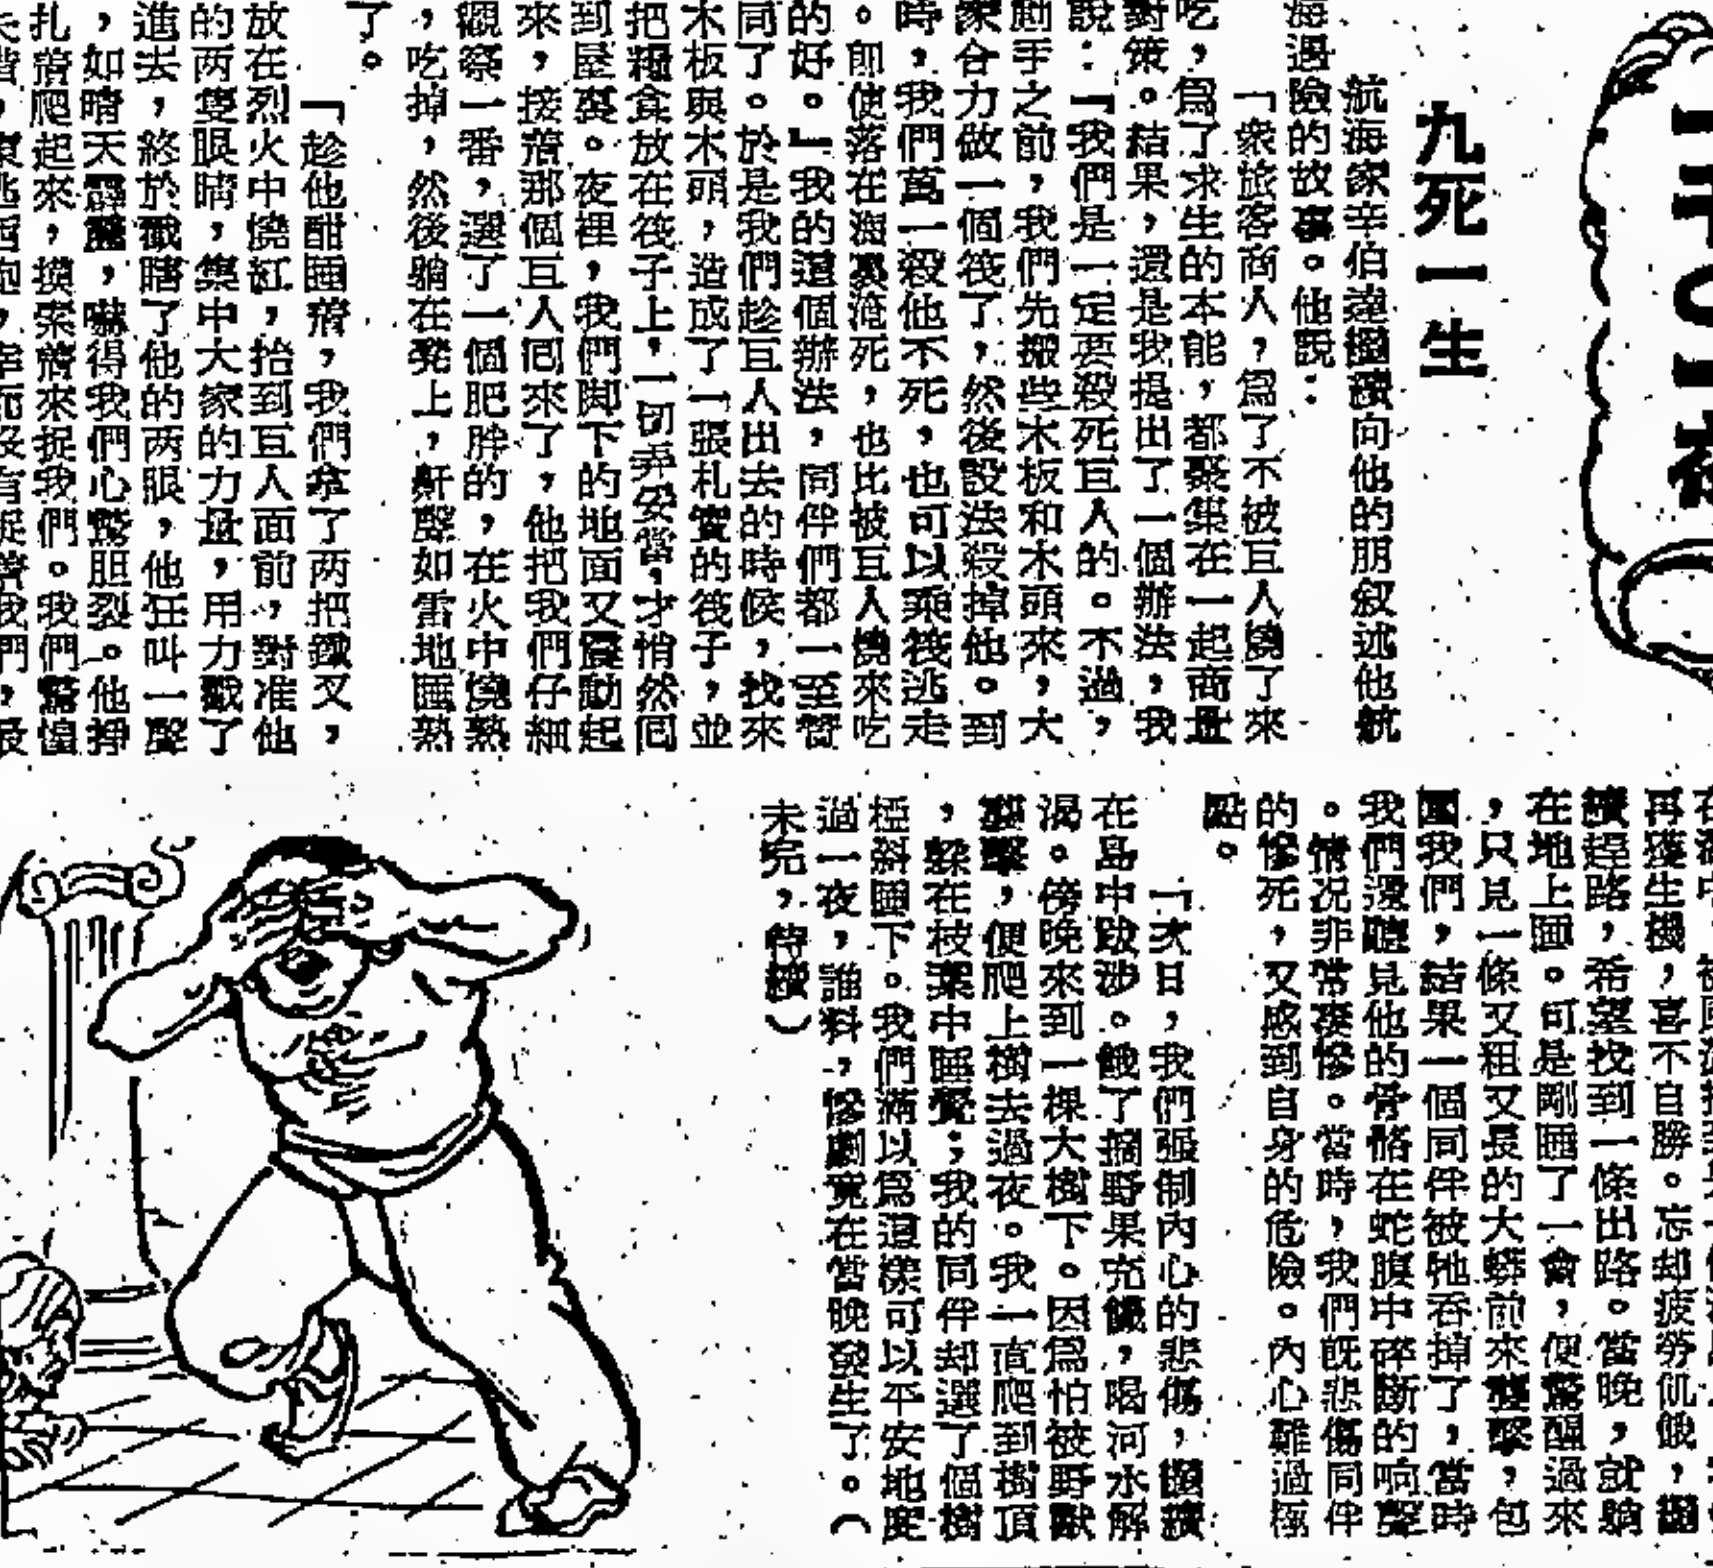 九死一生
航海家辛伯達繼續向他的朋叙述他航
海遇險的故事。他說:
「衆旅客商人,爲了不被亘人燒了來
吃,爲了求生的本能,都聚集在一起商量
對策。結果,還是我提出了一個辦法,我
說:「我們是一定要殺死亘人的。不過,
動手之前,我們先搬些木板和木頭來,大
家合力做一個筏了,然後設法殺掉他。到
時,我們萬一殺他不死,也可以乘筏逃走
。卽使落在海裏淹死,也比被亘人燒來吃
的好。」我的這個辦法,同伴們都一至贊
同了。於是我們趁亘人出去的時候,找來
木板與木頭,造成了一張札實的筏子,並
把糧食放在筏子上,一切弄妥當,才悄然囘
到屋裏。夜裡,我們脚下的地面又震動起
來,接着那個亘人囘來了,他把我們仔細
觀察一番,選了一個肥胖的,在火中燒熟
,吃掉,然後躺在凳上,鼾聲如雷地睡熟
了。
「趁他酣睡着,我們拿了两把鐵叉,
放在烈火中燒紅,抬到亘人面前,對准他
的两隻眼睛,集中大家的力量,用力戳了
進去,終於戳瞎了他的两眼,他狂叫一聲
,如晴天霹靂,嚇得我們心驚胆裂。他掙
扎着爬起來,摸索着來捉我們。我們驚惶
再獲生機,喜不自勝。忘却疲勞飢餓,繼
續趕路,希望找到一條出路。當晚,就躺
在地上睡。可是剛睡了一會,便驚醒過來
,只見一條又粗又長的大蟒前來襲擊,包
圍我們,結果一個同伴被牠吞掉了,當時
我們還聽見他的骨骼在蛇腹中碎斷的响聲
。情況非常凄慘。當時,我們旣悲傷同伴
的慘死,又感到自身的危險。內心難過極
點。
「次日,我們强制內心的悲傷,繼續
在島中跋涉。餓了摘野果充饑,喝河水解
渴。傍晚來到一棵大樹下。因爲怕被野獸
襲擊,便爬上樹去過夜。我一直爬到樹頂
,躲在枝葉中睡覺;我的同伴却選了個樹
椏斜睡下。我們滿以爲這樣可以平安地度
過一夜,誰料,慘劇竟在當晚發生了。(
未完,待續)